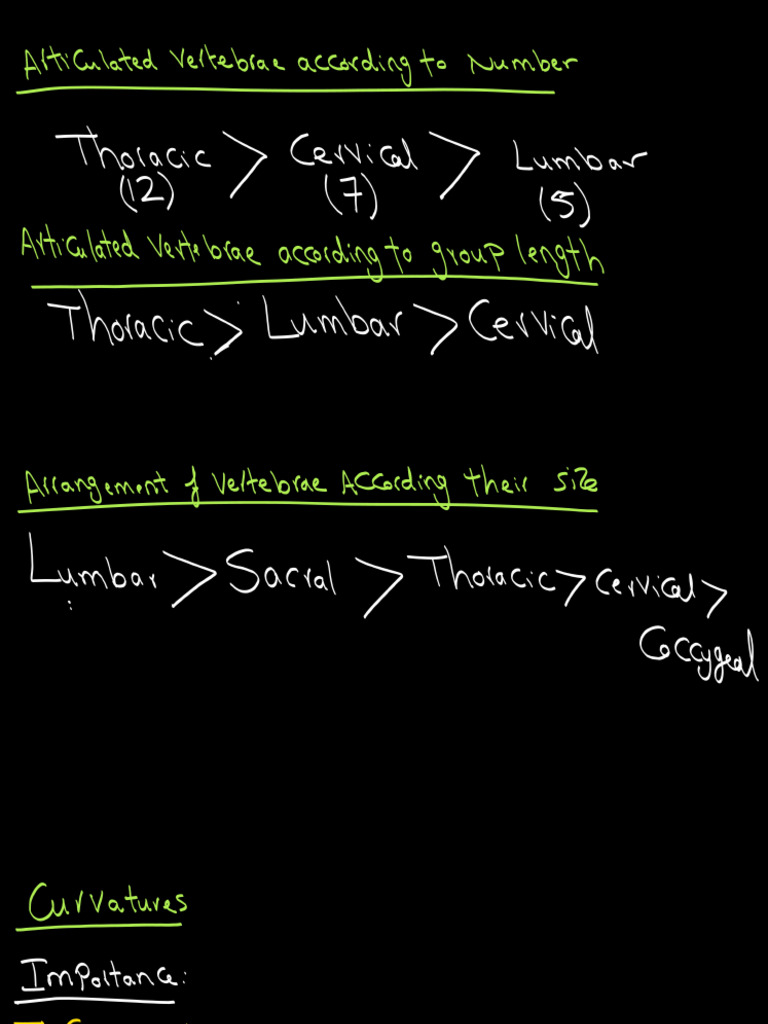 Articulated Vertebrae according to Number
Thoracic > Cervical > Lumbar
(12) (7) (5)
Articulated Vertebrae according to group length
Thoracic > Lumbar > Cervical
Arrangement of Vertebrae According their size
Lumbar > Sacral > Thoracic > Cervical >
Coccygeal
Curvatures
Importance: